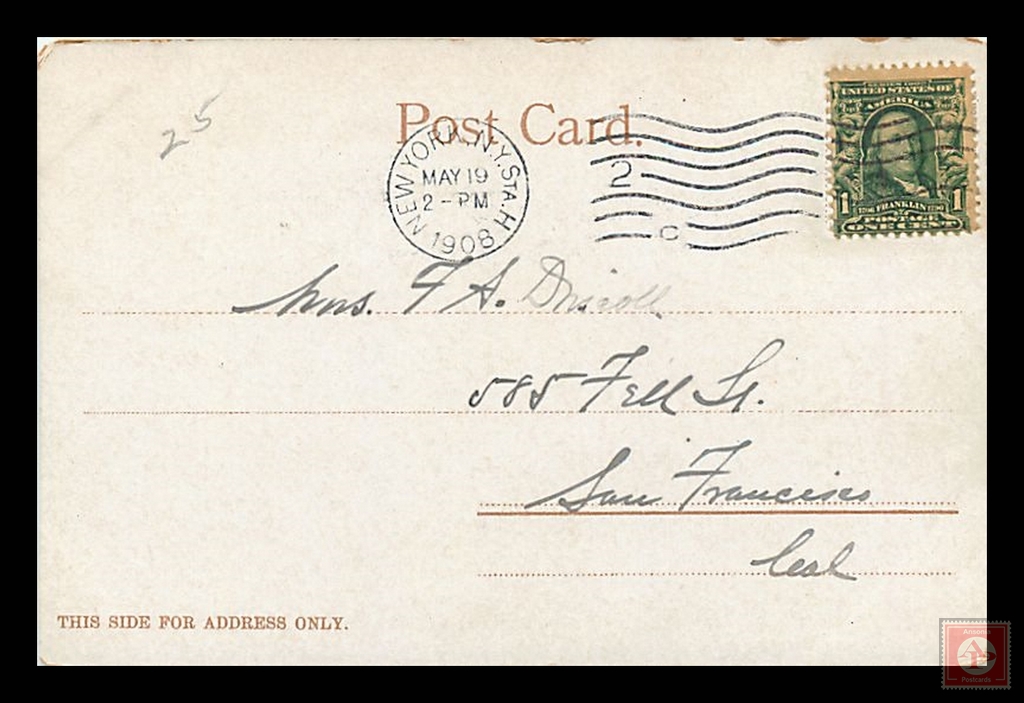 25
Post Card.
NEW YORK, N.Y. STA. H
MAY 19
2 - PM
1908
2
C
SERIES 1902
UNITED STATES OF
AMERICA
1 FRANKLIN 1
POSTAGE
ONE CENT
Mrs. F A. Driscoll
585 Fell St.
San Francisco
Cal
THIS SIDE FOR ADDRESS ONLY.
Postcards